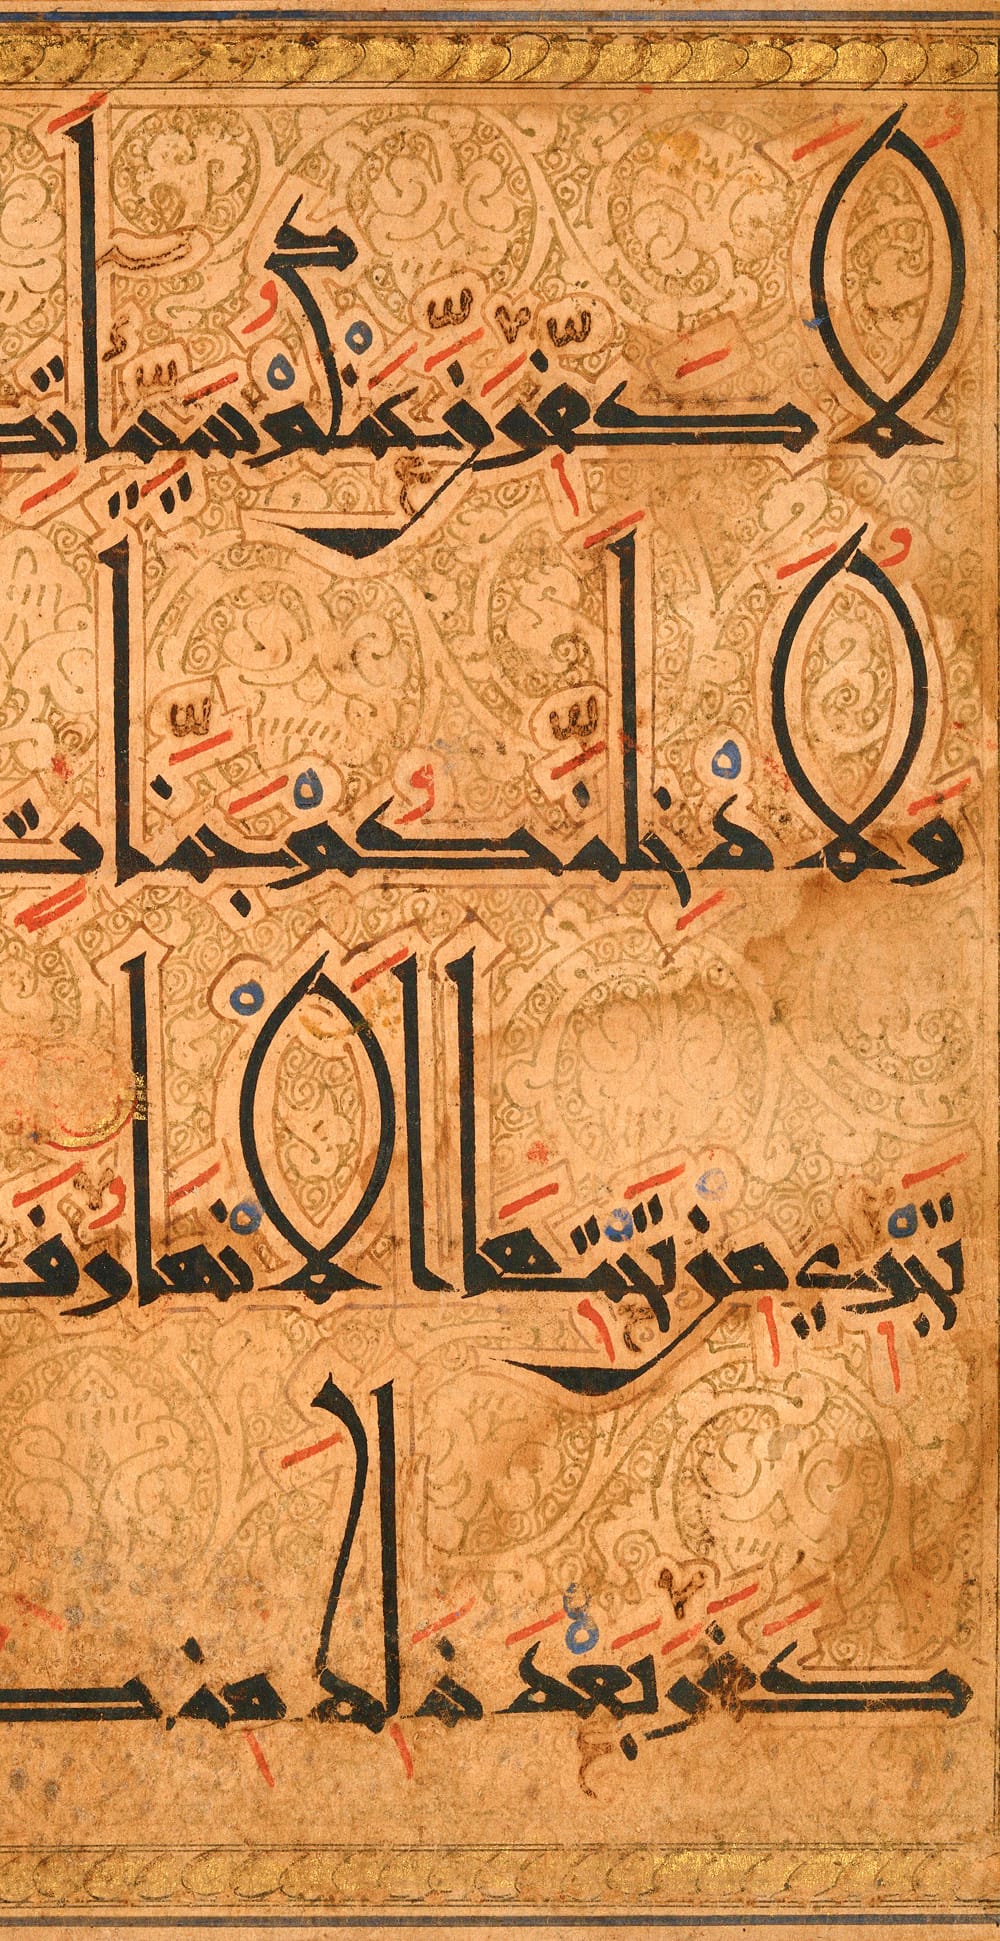 لَأُكَفِّرَنَّ عَنْكُمْ سَيِّاٰتِكـ
وَلَأُدْخِلَنَّكُمْ جَنَّاتٍ
تَجْرِي مِنْ تَحْتِهَا الْأَنْهَارُ فَمـ
كَفَرَ بَعْدَ ذَلِكَ مِنْكـ